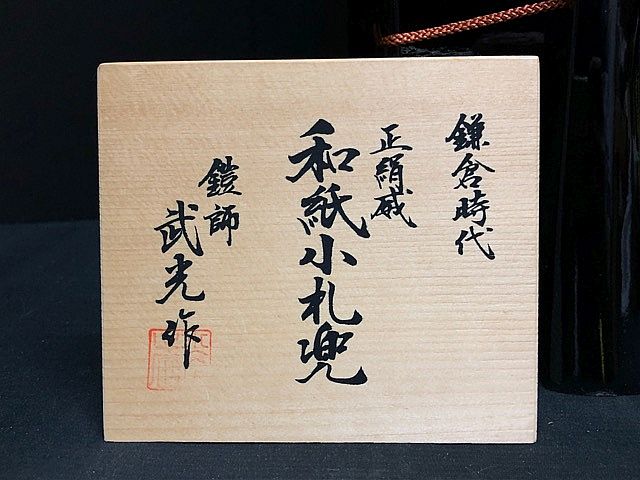 鎌倉時代
正絹威
和紙小札兜
鎧師
武光作